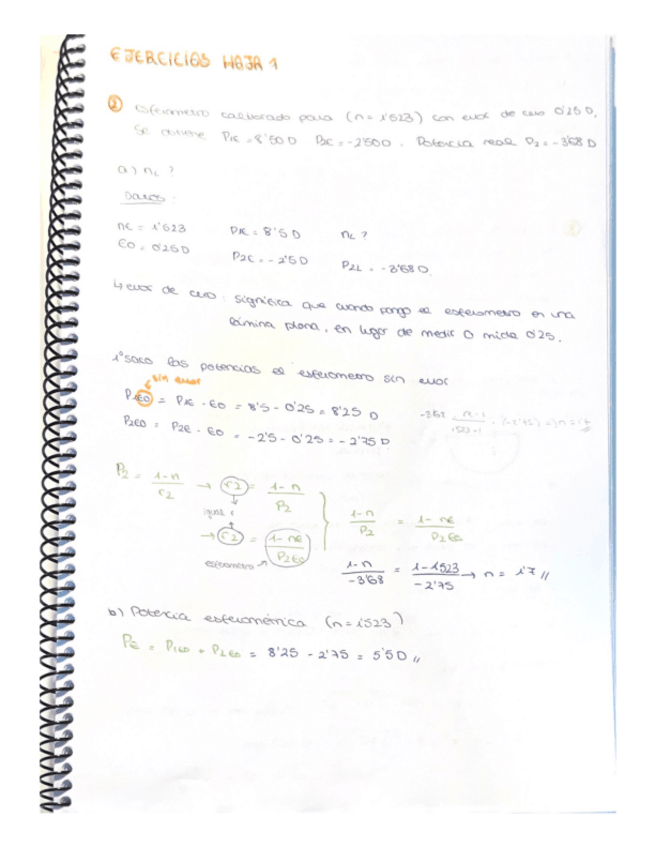 EJERCICIOS HOJA 1
② Esferometro calibrado para (n = 1'523) con error de cero 0'25 D.
Se obtiene P1E = 8'50 D P2E = -2'50D. Potencia real P2 = -3'68 D
a) nL ?
Datos:
nE = 1'523 P1E = 8'5 D nL ?
EO = 0'25 D P2E = -2'5D P2L = -3'68 D.
↳ error de cero: significa que cuando pongo el esferometro en una
lámina plana, en lugar de medir 0 mide 0'25.
1º saco las potencias el esferometro sin error
sin error
P1EO = P1E - EO = 8'5 - 0'25 = 8'25 D
P2EO = P2E - EO = -2'5 - 0'25 = -2'75 D
P2 = 1-n / r2 → r2 = 1-n / P2
igual
→ r2 = 1-nE / P2EO
esferometro
1-n / P2 = 1-nE / P2EO
1-n / -3'68 = 1-1'523 / -2'75 → n = 1'7 //
b) Potencia esferométrica (n=1'523)
PE = P1EO + P2EO = 8'25 - 2'75 = 5'5 D //